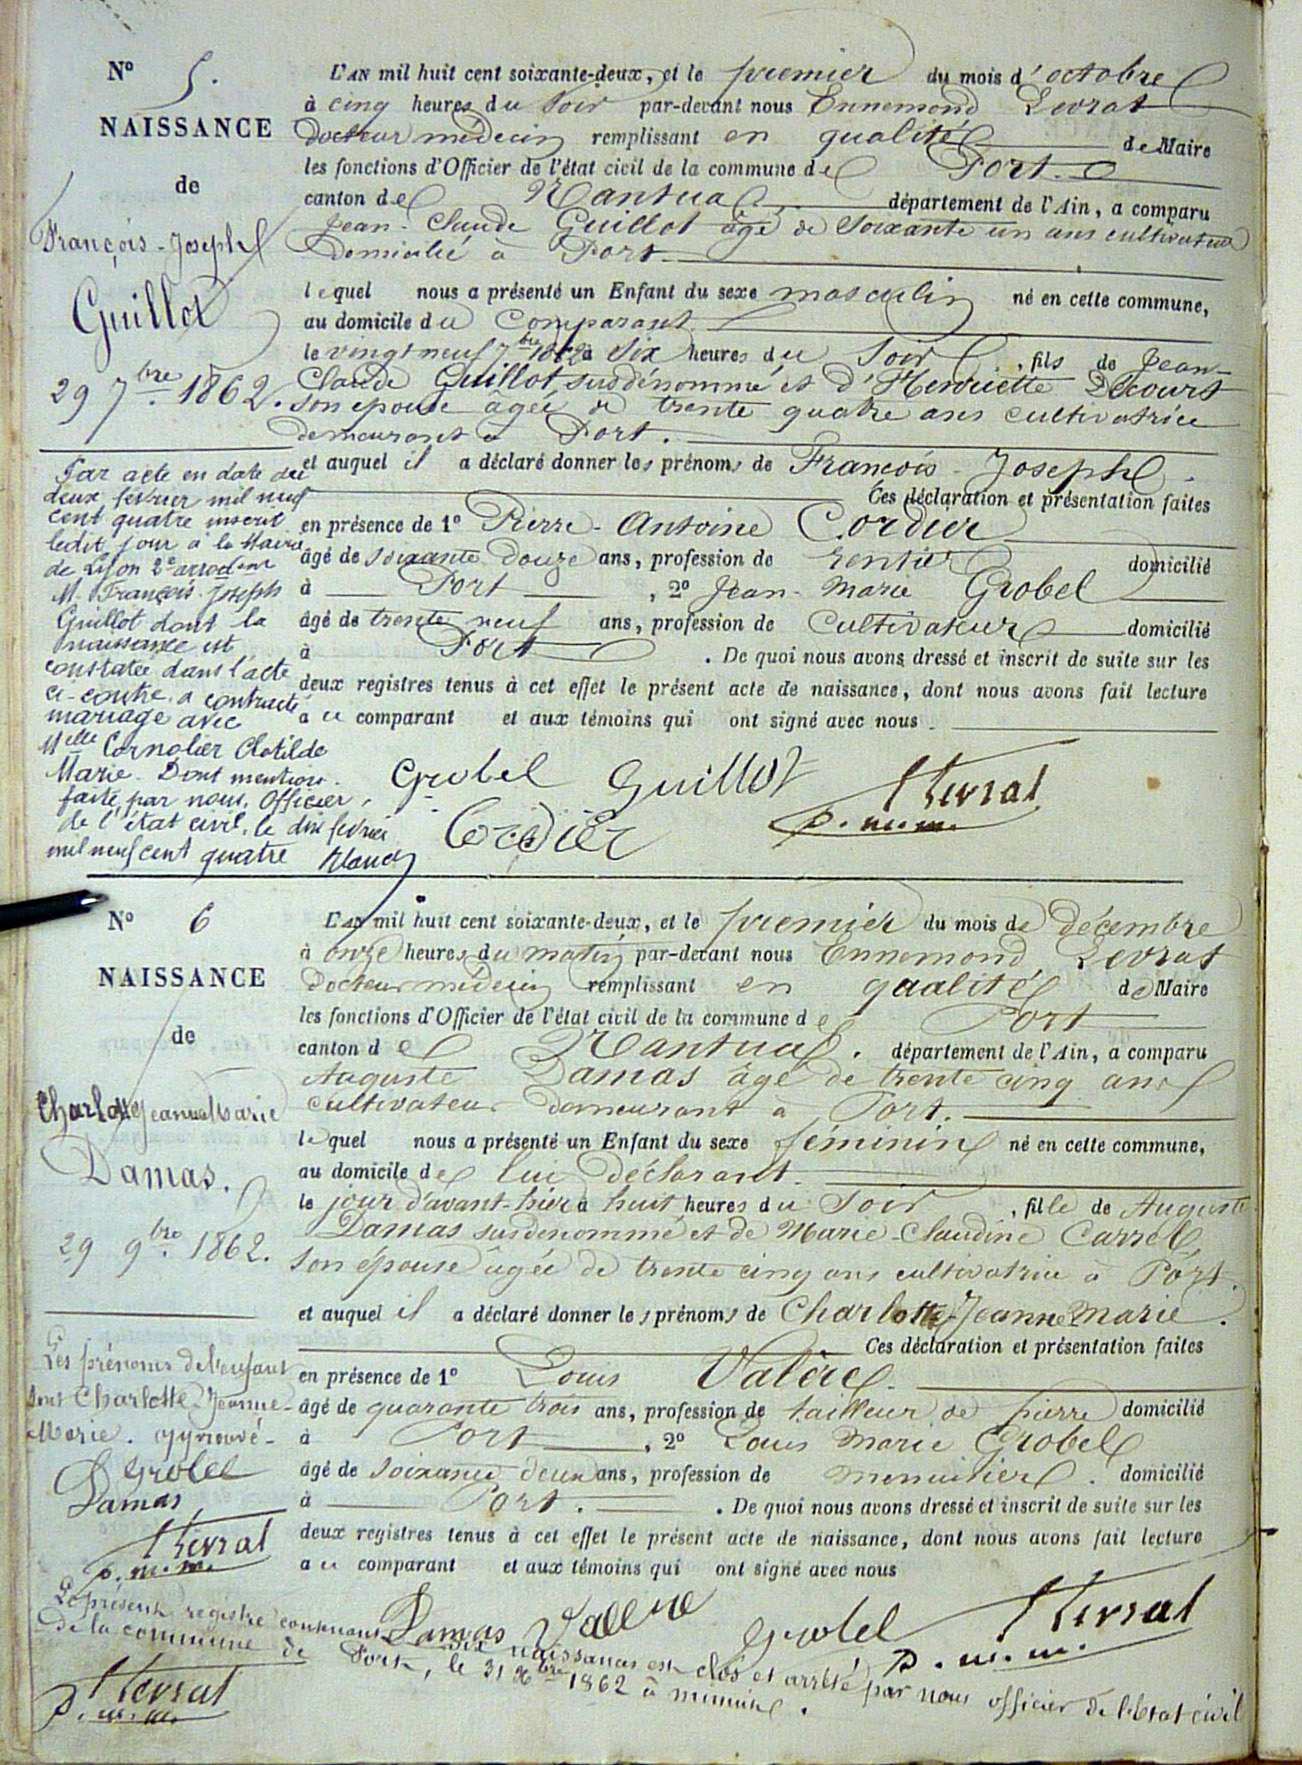 N° 5.
NAISSANCE
de
François-Joseph
Guillot
29 7bre 1862.
L'AN mil huit cent soixante-deux, et le premier du mois d'octobre
à cinq heures du soir par-devant nous Ennemond Levrat
docteur médecin remplissant en qualité de Maire
les fonctions d'Officier de l'état civil de la commune de Port.
canton de Nantua département de l'Ain, a comparu
Jean-Claude Guillot âgé de soixante un ans cultivateur
domicilié à Port.
lequel nous a présenté un Enfant du sexe masculin né en cette commune,
au domicile du comparant.
le vingt neuf 7bre 1862 à six heures du soir, fils de Jean-
Claude Guillot susdénommé et d'Henriette Decourt
son épouse âgée de trente quatre ans cultivatrice
demeurant à Port.
et auquel il a déclaré donner les prénoms de François-Joseph.
Ces déclaration et présentation faites
en présence de 1° Pierre-Antoine Cordier
âgé de soixante douze ans, profession de rentier domicilié
à Port, 2° Jean-Marie Grobel
âgé de trente neuf ans, profession de cultivateur domicilié
à Port. De quoi nous avons dressé et inscrit de suite sur les
deux registres tenus à cet effet le présent acte de naissance, dont nous avons fait lecture
a u comparant et aux témoins qui ont signé avec nous.
Grobel Guillot Levrat
Cordier p. m. m.
Par acte en date du
deux février mil neuf
cent quatre inscrit
ledit jour à la Mairie
de Lyon 2e arrodisst
M. François-Joseph
Guillot dont la
naissance est
constatée dans l'acte
ci-contre a contracté
mariage avec
Melle Cornolier Clotilde
Marie. Dont mention
faite par nous, Officier
de l'état civil, le dix février
mil neuf cent quatre
N° 6
NAISSANCE
de
Charlotte Jeanne Marie
Damas.
29 9bre 1862.
L'AN mil huit cent soixante-deux, et le premier du mois de décembre
à onze heures du matin par-devant nous Ennemond Levrat
docteur médecin remplissant en qualité de Maire
les fonctions d'Officier de l'état civil de la commune de Port
canton de Nantua. département de l'Ain, a comparu
Auguste Damas âgé de trente cinq ans
cultivateur demeurant à Port.
lequel nous a présenté un Enfant du sexe féminin né en cette commune,
au domicile de lui déclarant.
le jour d'avant-hier à huit heures du soir, fille de Auguste
Damas susdénommé et de Marie-Claudine Carrel
son épouse âgée de trente cinq ans cultivatrice à Port.
et auquel il a déclaré donner les prénoms de Charlotte-Jeanne Marie.
Ces déclaration et présentation faites
en présence de 1° Louis Valère.
âgé de quarante trois ans, profession de tailleur de pierre domicilié
à Port, 2° Louis Marie Grobel
âgé de soixante deux ans, profession de menuisier. domicilié
à Port. De quoi nous avons dressé et inscrit de suite sur les
deux registres tenus à cet effet le présent acte de naissance, dont nous avons fait lecture
a u comparant et aux témoins qui ont signé avec nous
Damas Valère Grobel Levrat
p. m. m.
Les prénoms de l'enfant
sont Charlotte-Jeanne-
Marie. approuvé-
Grobel
Damas
Levrat
p. m. m.
Le présent registre contenant six naissances est clos et arrêté par nous officier de l'état civil
de la commune de Port, le 31 Xbre 1862 à minuit.
Levrat
p. m. m.